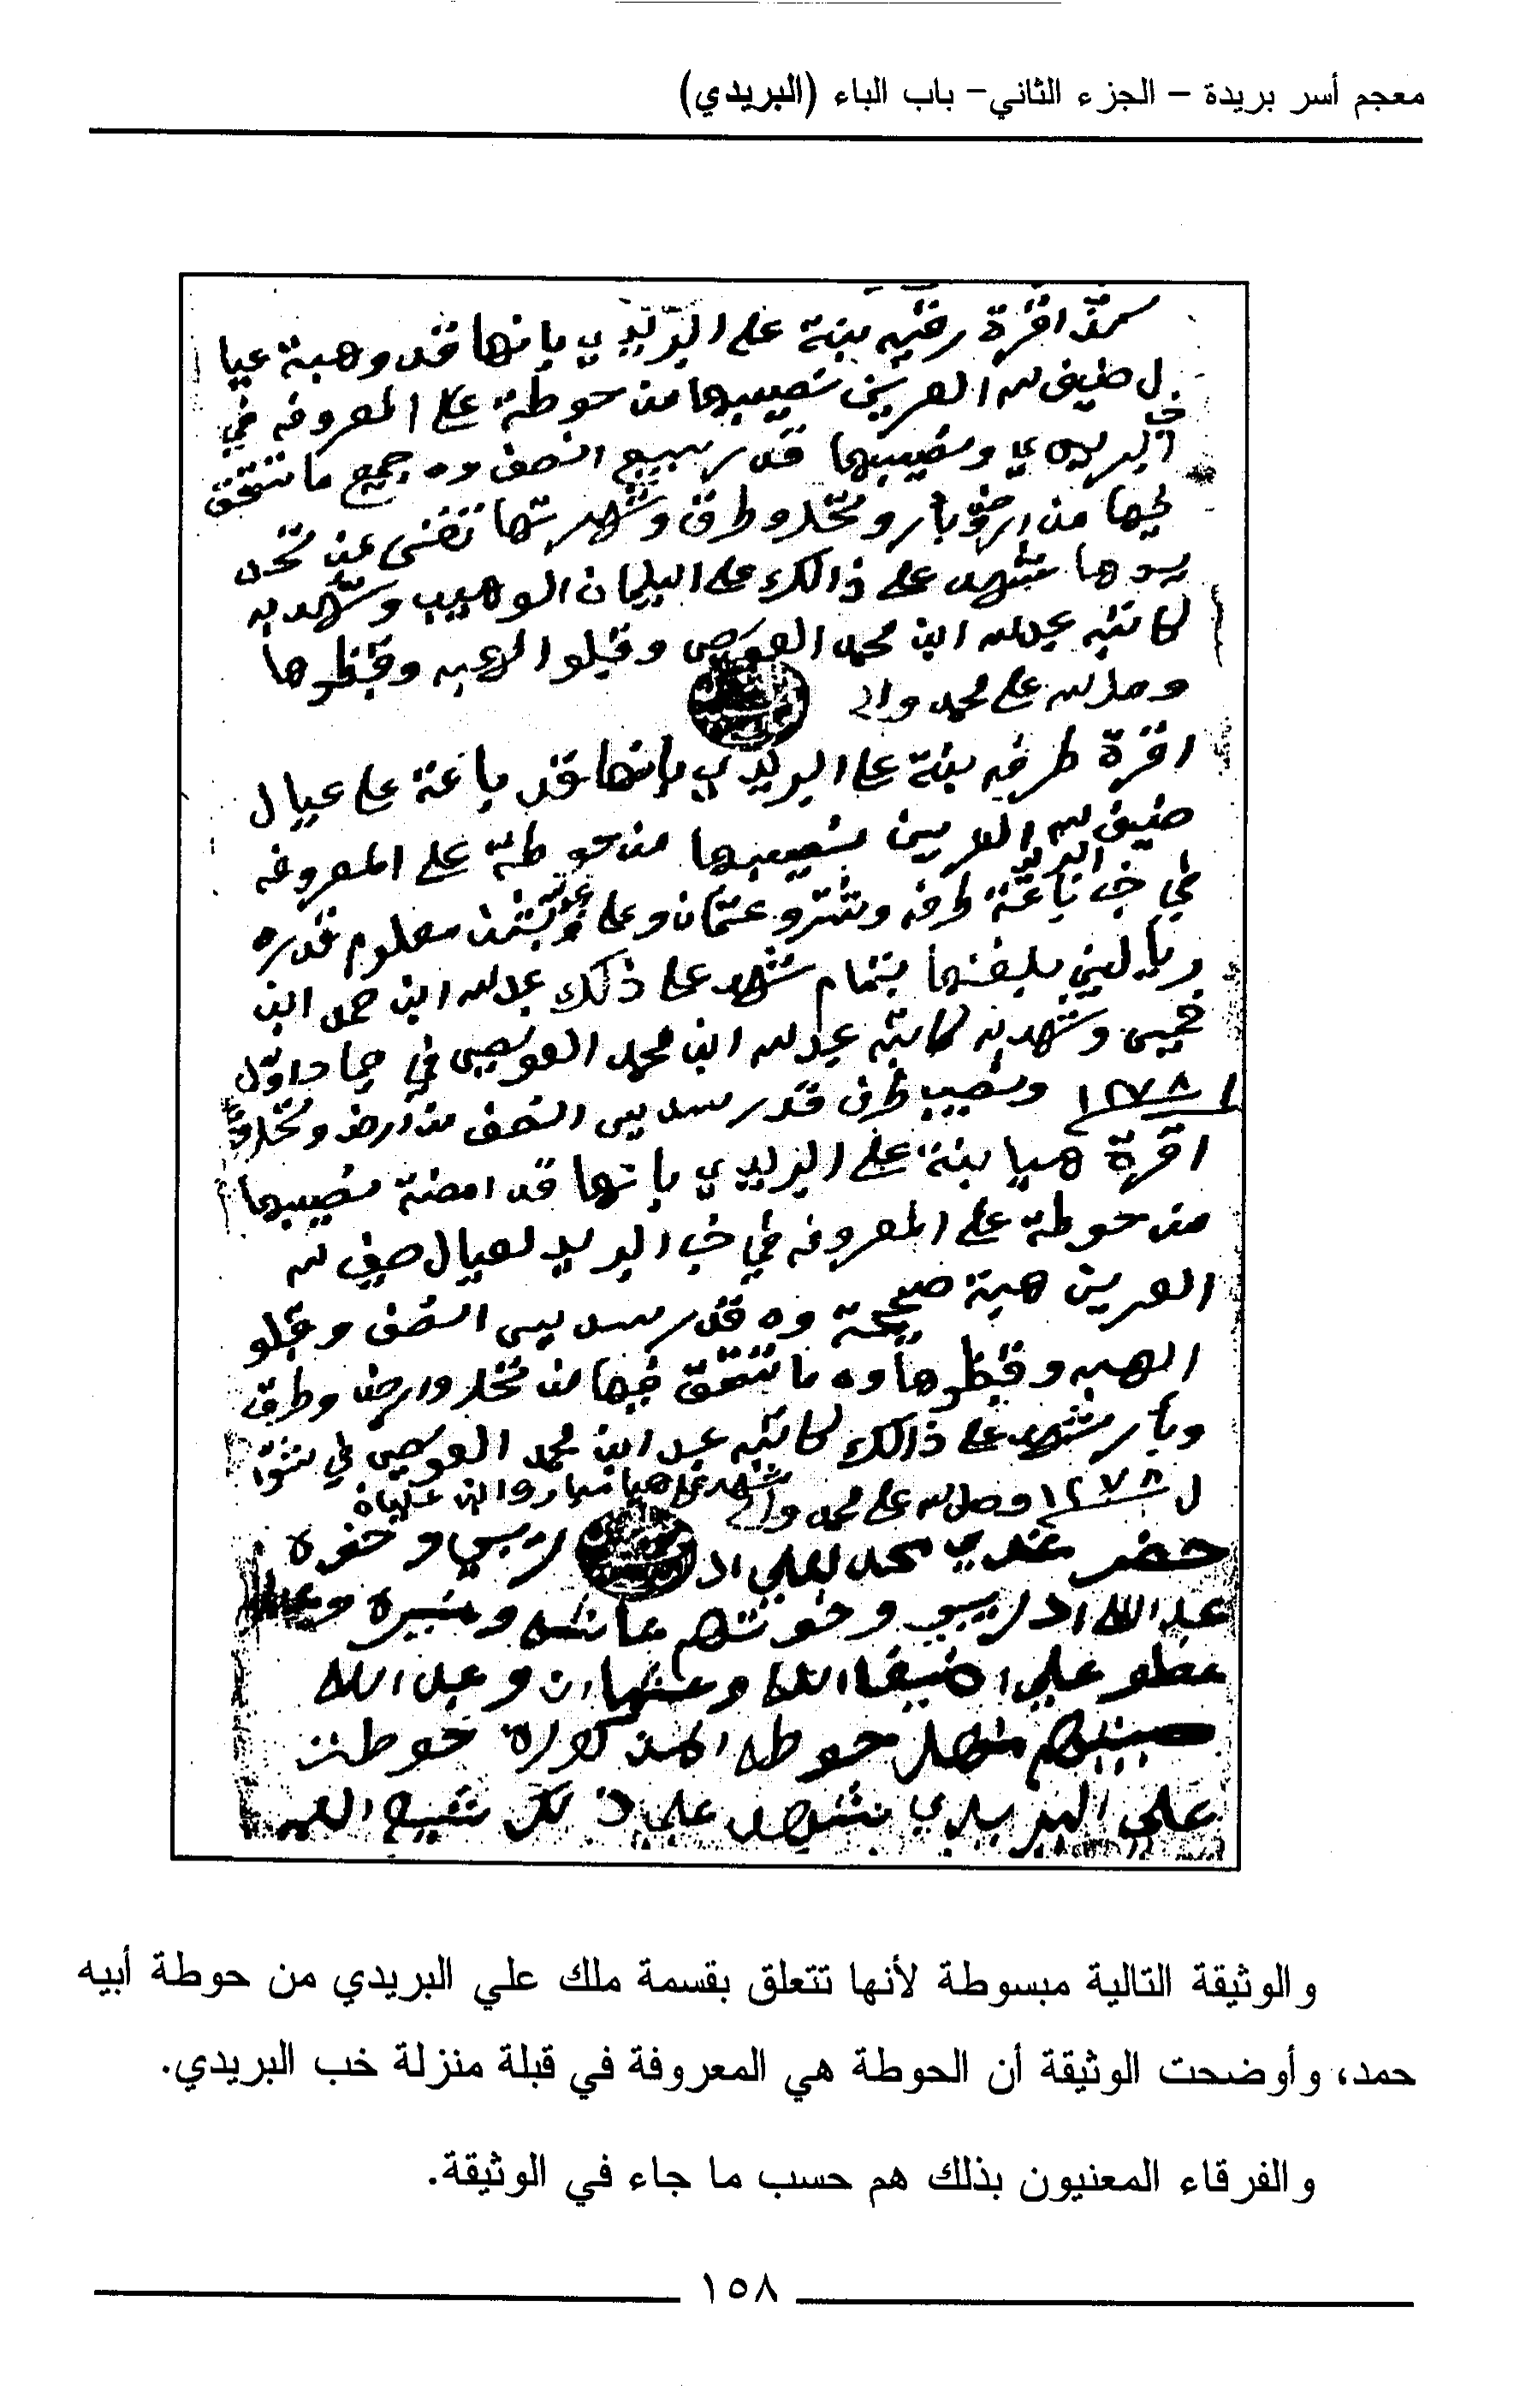 معجم أسر بريدة – الجزء الثاني– باب الباء (البريدي)
اقرة رقيه بنة علي البريدي بانها قد وهبة عيا
ل ضيف الله العرين نصيبها من حوطة علي المعروفه في
خب البريدي ونصيبها قدر سبيع النصف وه جميع ما تتحقق
فيها من ارض وبار ونخل وطرق وشهرتها تغني عن تحد
يدها شهد على ذالك علي السليمان الوهيبي وشهد به
كاتبه عبدالله ابن محمد العويصي وقبلو الهبه وقبظوها
وصلى الله على محمد واله
اقرة طرفه بنة علي البريدي بانها قد باعة على عيال
ضيف الله العرين نصيبها من حوطة علي المعروفه
في خب البريدي باعة طرفه وشترو عثمان وعلي بثمن معلوم قدره
ريالين بلغنها بتمام شهد على ذلك عبدالله ابن حمد ابن
وشهد به كاتبه عبدالله ابن محمد العويصي في جماد اول
١٢٧٨ ونصيب طرف قدر سديس النصف من ارض ونخل
اقرة هيا بنة علي البريدي بانها قد امضة نصيبها
من حوطة علي المعروفه في خب البريد لعيال ضيف الله
العرين هبة صحيحة وه قدر سديس النصف وقبلو
الهبه وقبظوها وه ما تتحقق فيها من نخل وارض وطرق
وبار شهد على ذالك كاتبه عبد ابن محمد العويصي في شوا
ل ١٢٧٨ وصلى الله على محمد واله
حضر عندي محمد لعلي ادريبي وخوه
عبدالله ادريبي وخوتهم ومنيره
عطو علي اضيف الله وعثمان وعبدالله
حوطه المذكوره حوطت
علي البريدي بشهد على ذلك
والوثيقة التالية مبسوطة لأنها تتعلق بقسمة ملك علي البريدي من حوطة أبيه
حمد، وأوضحت الوثيقة أن الحوطة هي المعروفة في قبلة منزلة خب البريدي.
والفرقاء المعنيون بذلك هم حسب ما جاء في الوثيقة.
١٥٨